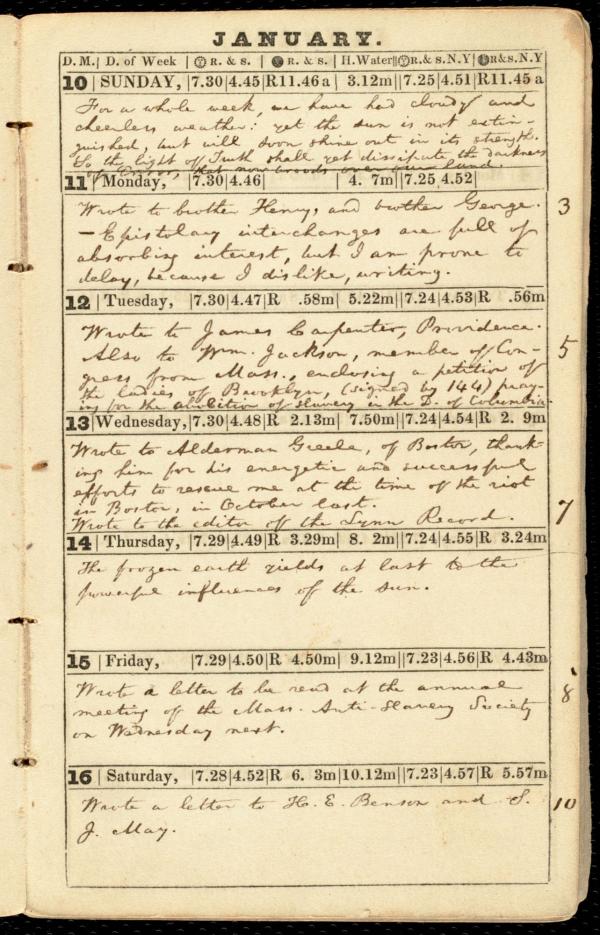 JANUARY.
D.M. | D. of Week | R. & s. | R. & s. | H.Water || R. & s.N.Y | R&s.N.Y
10 | SUNDAY, | 7.30 | 4.45 | R11.46 a | 3.12m || 7.25 | 4.51 | R11.45 a
For a whole week, we have had cloudy and
cheerless weather: yet the sun is not extin-
guished, but will soon shine out in its strength.
So the light of Truth shall yet dissipate the darkness
of Error, that now broods over our land.
11 | Monday, | 7.30 | 4.46 | | 4. 7m || 7.25 | 4.52 |
Wrote to brother Henry, and brother George.
— Epistolary interchanges are full of
absorbing interest, but I am prone to
delay, because I dislike, writing.
3
12 | Tuesday, | 7.30 | 4.47 | R .58m | 5.22m || 7.24 | 4.53 | R .56m
Wrote to James Carpenter, Providence.
Also to Wm. Jackson, member of Con-
gress from Mass., enclosing a petition of
the ladies of Brooklyn, (signed by 144) pray-
ing for the abolition of slavery in the D. of Columbia.
5
13 | Wednesday, | 7.30 | 4.48 | R 2.13m | 7.50m || 7.24 | 4.54 | R 2. 9m
Wrote to Alderman Greele, of Boston, thank-
ing him for his energetic and successful
efforts to rescue me at the time of the riot
in Boston, in October last.
Wrote to the editor of the Lynn Record.
7
14 | Thursday, | 7.29 | 4.49 | R 3.29m | 8. 2m || 7.24 | 4.55 | R 3.24m
The frozen earth yields at last to the
powerful influences of the sun.
15 | Friday, | 7.29 | 4.50 | R 4.50m | 9.12m || 7.23 | 4.56 | R 4.43m
Wrote a letter to be read at the annual
meeting of the Mass. Anti-Slavery Society
on Wednesday next.
8
16 | Saturday, | 7.28 | 4.52 | R 6. 3m | 10.12m || 7.23 | 4.57 | R 5.57m
Wrote a letter to H. E. Benson and S.
J. May.
10